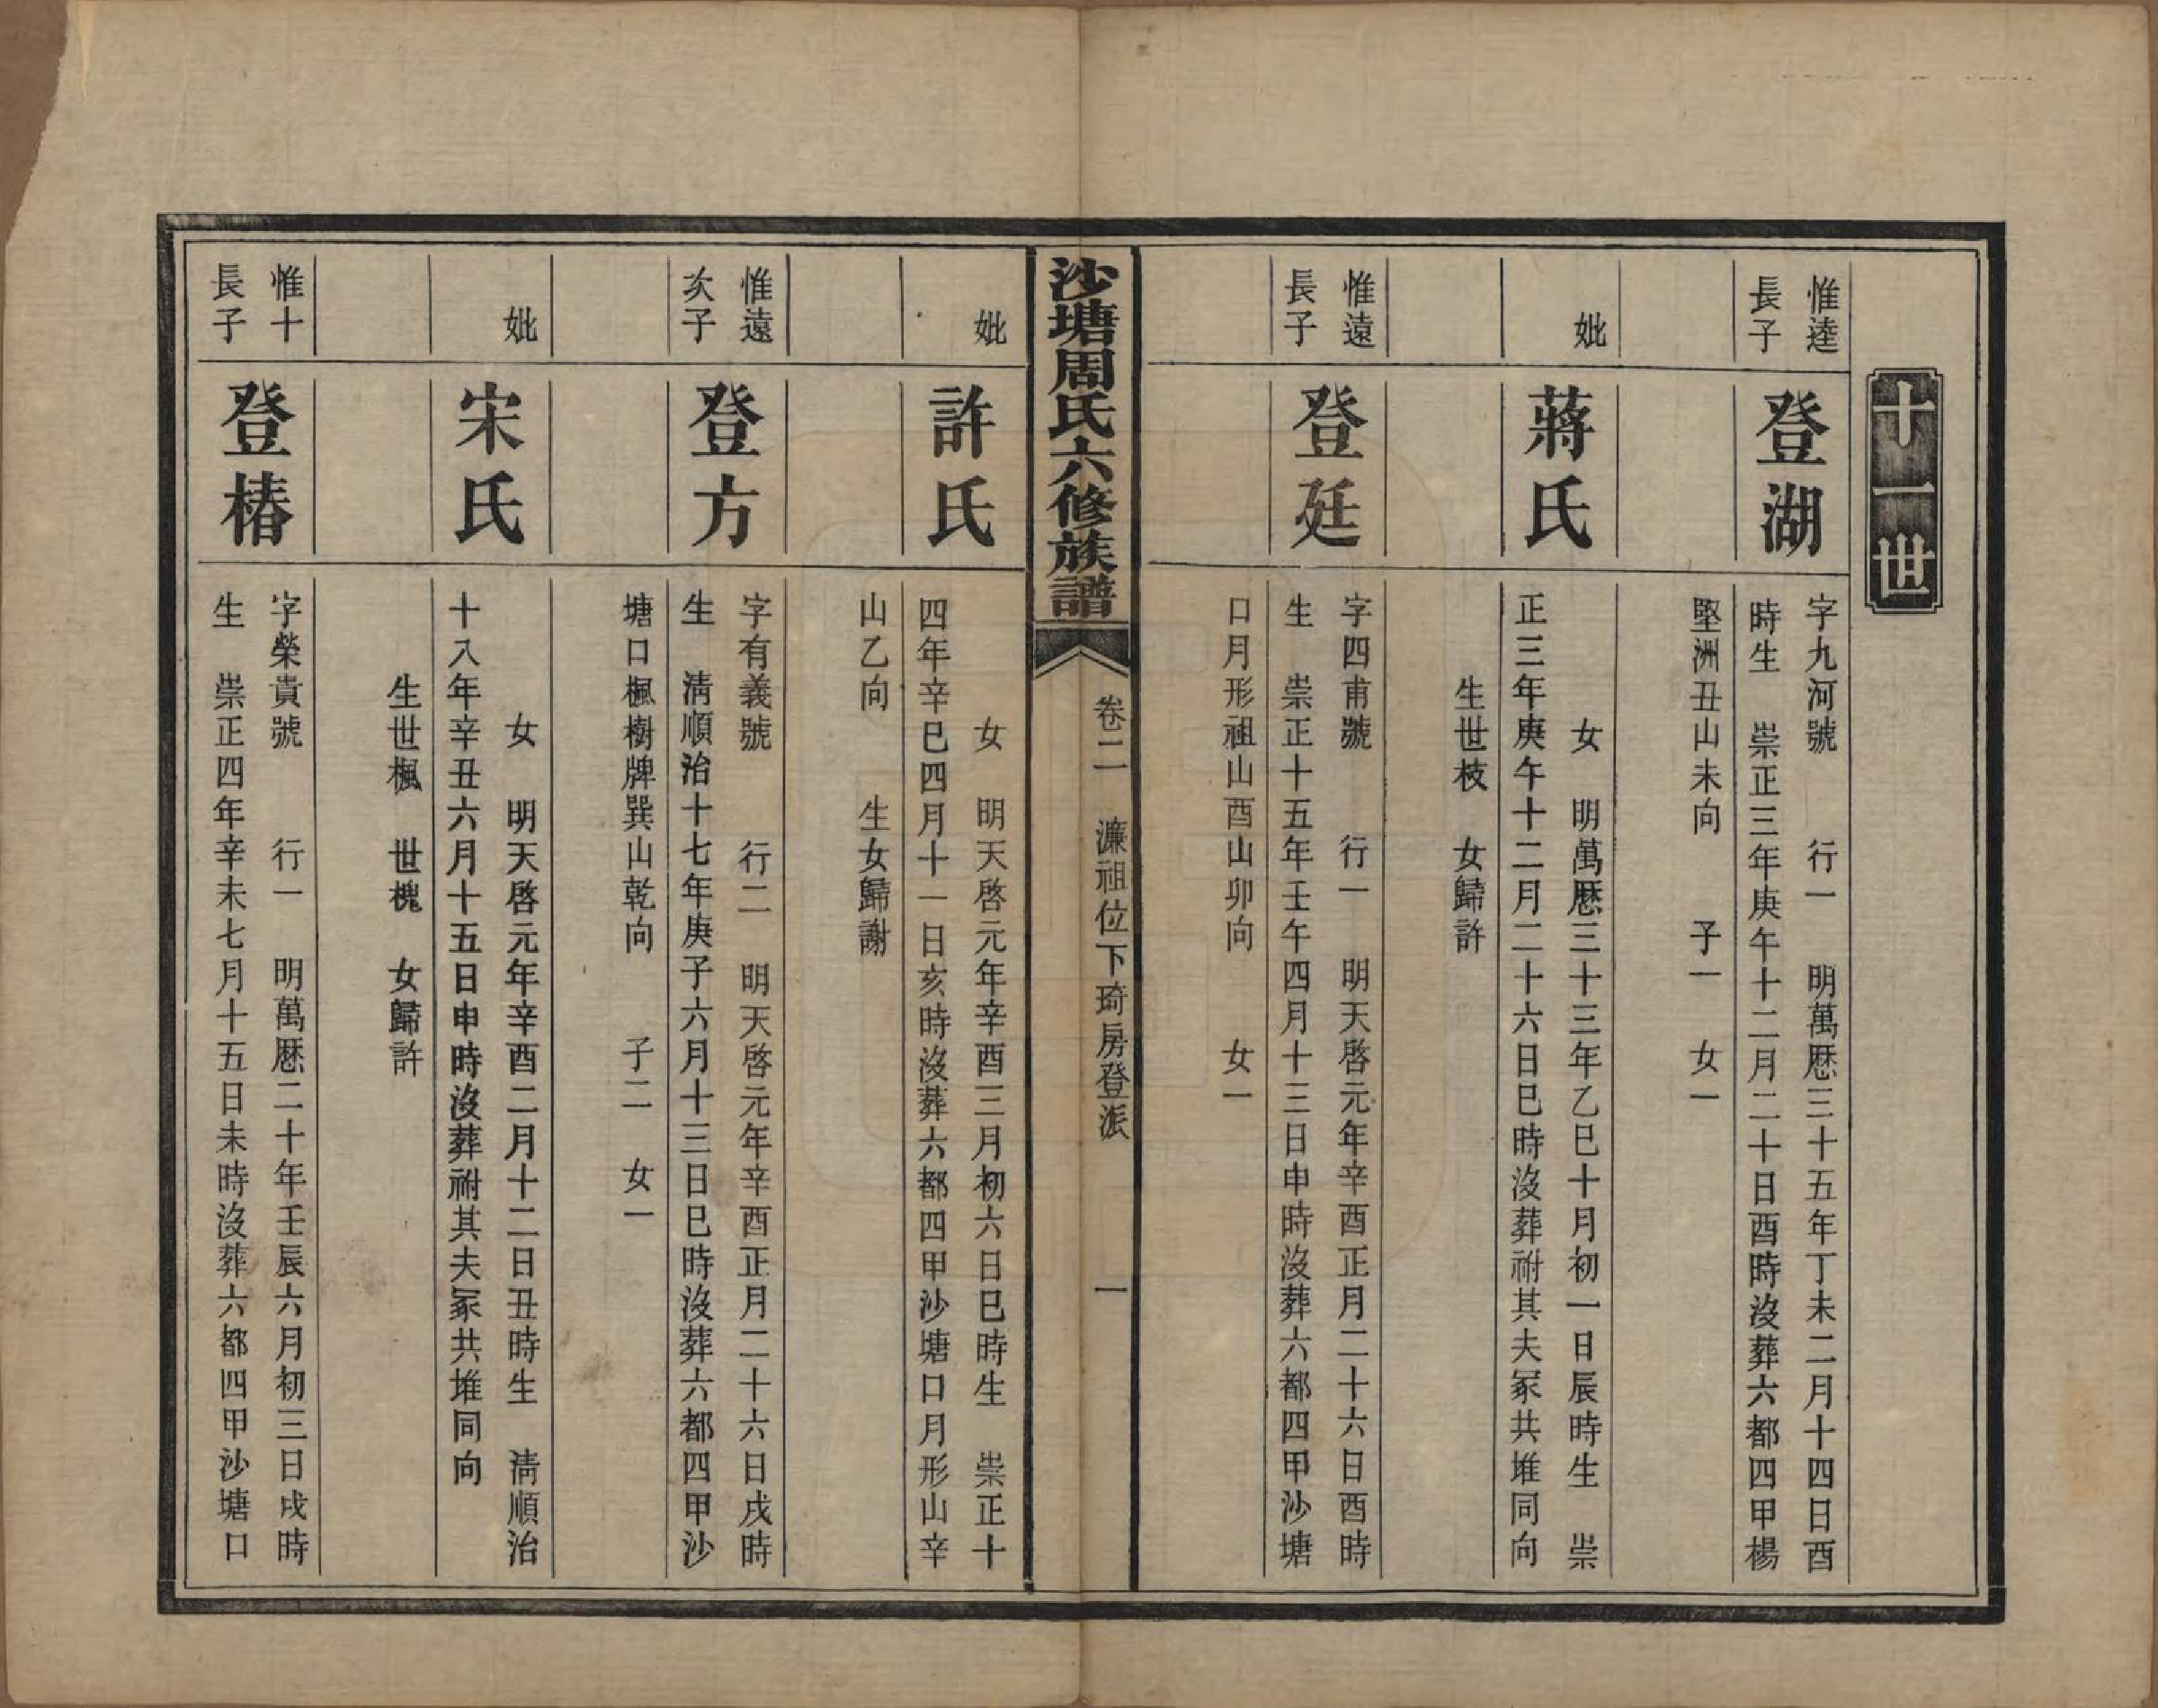 十一世
惟逵
長子
登湖
字九河號　　行一　明萬厯三十五年丁未二月十四日酉
時生　崇正三年庚午十二月二十日酉時沒葬六都四甲楊
堅洲丑山未向　　子一　女一
妣
蔣氏
女　明萬厯三十三年乙巳十月初一日辰時生　崇
正三年庚午十二月二十六日巳時沒葬祔其夫冢共堆同向
生世枝　女歸許
惟遠
長子
登廷
字四甫號　　行一　明天啓元年辛酉正月二十六日酉時
生　崇正十五年壬午四月十三日申時沒葬六都四甲沙塘
口月形祖山酉山卯向　　女一
沙塘周氏六修族譜
卷二　濂祖位下琦房登派
一
妣
許氏
女　明天啓元年辛酉三月初六日巳時生　崇正十
四年辛巳四月十一日亥時沒葬六都四甲沙塘口月形山辛
山乙向　　生女歸謝
惟遠
次子
登方
字有義號　　行二　明天啓元年辛酉正月二十六日戌時
生　淸順治十七年庚子六月十三日巳時沒葬六都四甲沙
塘口楓樹牌巽山乾向　　子二　女一
妣
宋氏
女　明天啓元年辛酉二月十二日丑時生　淸順治
十八年辛丑六月十五日申時沒葬祔其夫冢共堆同向
生世楓　世槐　女歸許
惟十
長子
登椿
字榮貴號　　行一　明萬厯二十年壬辰六月初三日戌時
生　崇正四年辛未七月十五日未時沒葬六都四甲沙塘口